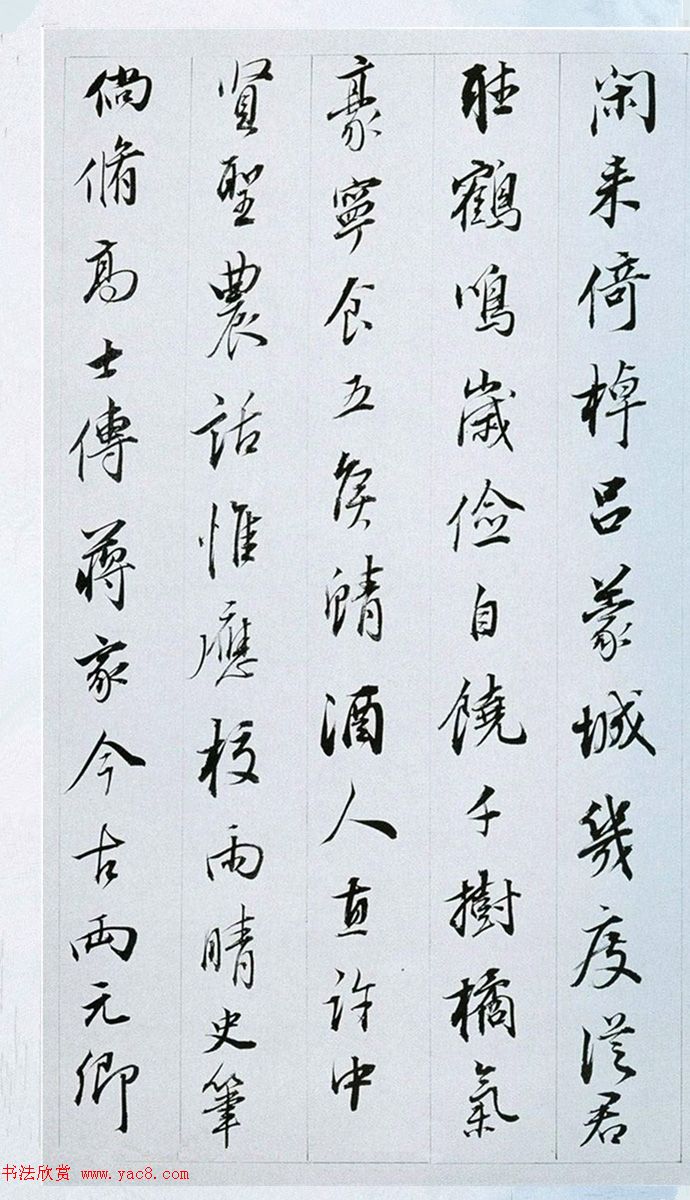 闲来倚棹吕蒙城幾度從君
聴鶴鳴歲俭自饒千樹橘氣
豪寧食五矦鯖酒人直許中
賢聖農話惟應校雨晴史筆
倘脩高士傳蔣家今古兩元卿
书法欣赏 www.yac8.com